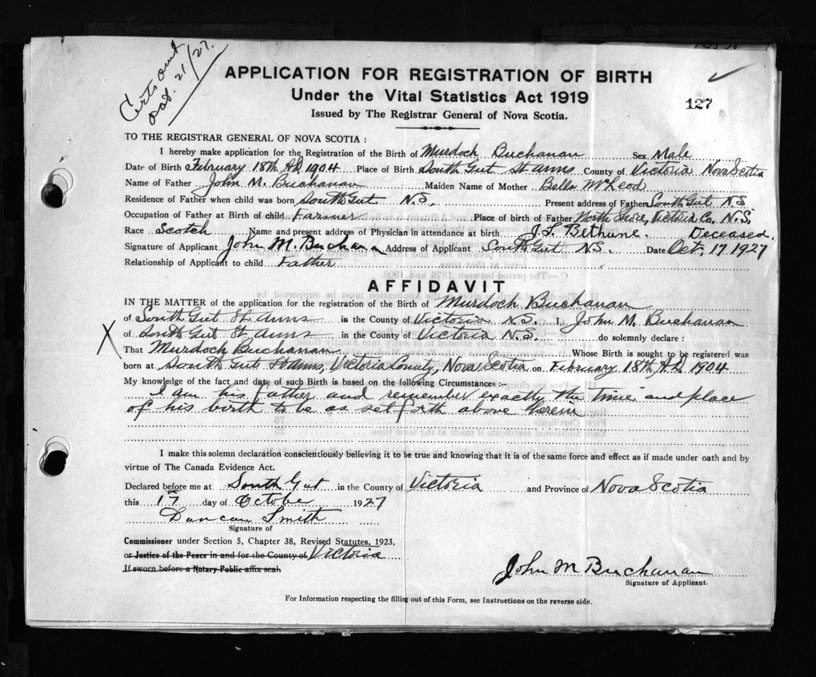 Certs out
Oct. 21/27.
APPLICATION FOR REGISTRATION OF BIRTH
Under the Vital Statistics Act 1919
127
Issued by The Registrar General of Nova Scotia.
TO THE REGISTRAR GENERAL OF NOVA SCOTIA :
I hereby make application for the Registration of the Birth of Murdoch Buchanan Sex Male
Date of Birth February 18th A.D. 1904 Place of Birth South Gut St Anns County of Victoria Nova Scotia
Name of Father John M. Buchanan Maiden Name of Mother Bella McLeod
Residence of Father when child was born South Gut N.S. Present address of Father South Gut N.S
Occupation of Father at Birth of child Farmer Place of birth of Father North Shore, Victoria Co. N.S.
Race Scotch Name and present address of Physician in attendance at birth J.L. Bethune. Deceased.
Signature of Applicant John M. Buchanan Address of Applicant South Gut N.S. Date Oct. 17 1927
Relationship of Applicant to child Father
AFFIDAVIT
IN THE MATTER of the application for the registration of the Birth of Murdoch Buchanan
of South Gut St. Anns in the County of Victoria N.S. I, John M. Buchanan
X of South Gut St Anns in the County of Victoria N.S. do solemnly declare :
That Murdoch Buchanan Whose Birth is sought to be registered was
born at South Gut St Anns, Victoria County, Nova Scotia on February 18th, A.D. 1904
My knowledge of the fact and date of such Birth is based on the following Circumstances :-
I am his father and remember exactly the time and place
of his birth to be as set forth above herein
I make this solemn declaration conscientiously believing it to be true and knowing that it is of the same force and effect as if made under oath and by
virtue of The Canada Evidence Act.
Declared before me at South Gut in the County of Victoria and Province of Nova Scotia
this 17 day of October 1927
Duncan Smith
Signature of
Commissioner under Section 5, Chapter 38, Revised Statutes, 1923,
or Justice of the Peace in and for the County of Victoria
If sworn before a Notary Public affix seal
John M Buchanan
Signature of Applicant.
For Information respecting the filling out of this Form, see Instructions on the reverse side.